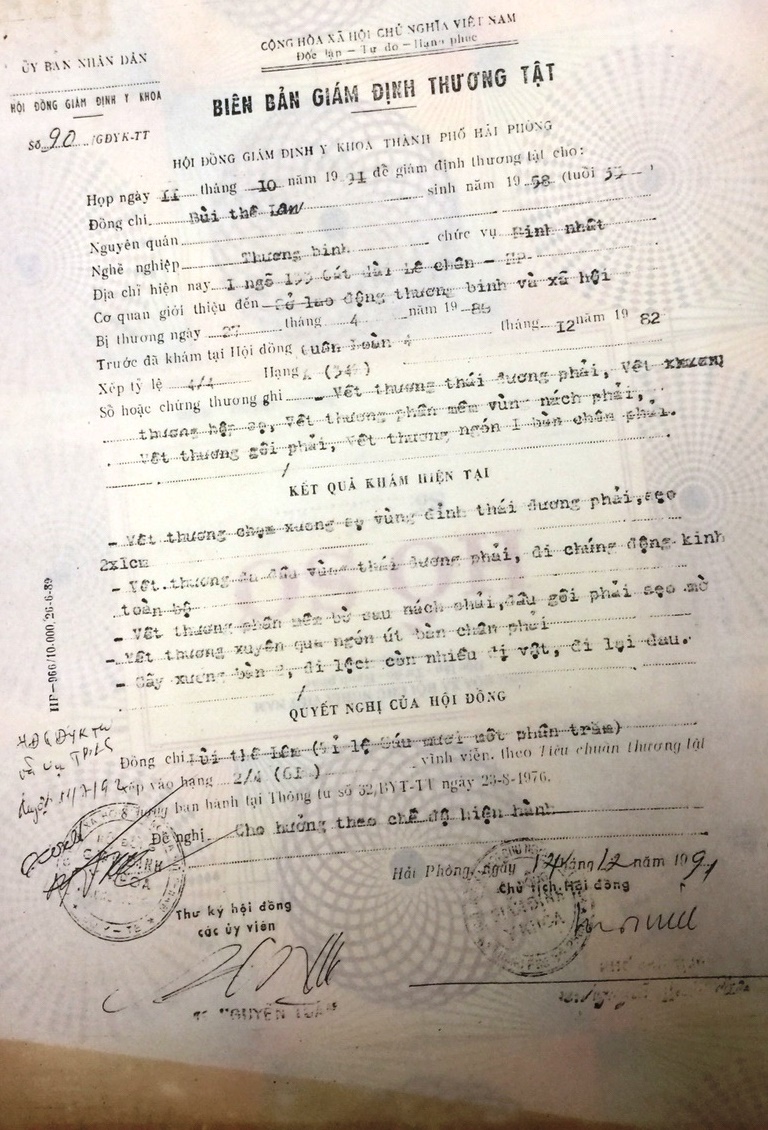 CỘNG HÒA XÃ HỘI CHỦ NGHĨA VIỆT NAM
Độc lập - Tự do - Hạnh phúc
ỦY BAN NHÂN DÂN
HỘI ĐỒNG GIÁM ĐỊNH Y KHOA
Số 90 /GĐYK-TT
BIÊN BẢN GIÁM ĐỊNH THƯƠNG TẬT
HỘI ĐỒNG GIÁM ĐỊNH Y KHOA THÀNH PHỐ HẢI PHÒNG
Họp ngày 11 tháng 10 năm 1991 để giám định thương tật cho:
Đồng chí Bùi thế Lân sinh năm 1958 (tuổi
Nguyên quán
Nghề nghiệp Thương binh chức vụ Binh nhất
Địa chỉ hiện nay 1 ngõ Cát dài Lê chân - HP
Cơ quan giới thiệu đến Sở lao động thương binh và xã hội
Bị thương ngày 27 tháng 4 năm 19
Trước đã khám tại Hội đồng Quân Đoàn 4 tháng 12 năm 1982
Xếp tỷ lệ 4/4 Hạng A
Sổ hoặc chứng thương ghi Vết thương thái dương phải, Vết
thương hộp sọ, Vết thương phần mềm vùng nách phải,
Vết thương gối phải, Vết thương ngón I bàn chân phải.
KẾT QUẢ KHÁM HIỆN TẠI
- Vết thương chạm xương sọ vùng đỉnh thái dương phải, sẹo
2x1cm
- Vết thương da đầu vùng thái dương phải, di chứng động kinh
toàn bộ
- Vết thương phần mềm bờ sau nách phải, đầu gối phải sẹo mờ
- Vết thương xuyên qua ngón út bàn chân phải
- Gãy xương bàn di lệch còn nhiều dị vật, đi lại đau.
IIP-966/10.000 26-6-89
QUYẾT NGHỊ CỦA HỘI ĐỒNG
Đồng chí Bùi thế Lân (Tỉ lệ Sáu mươi mốt phần trăm)
Xếp vào hạng 2/4 vĩnh viễn, theo Tiêu chuẩn thương tật
8 hạng ban hành tại Thông tư số 32/BYT-TT ngày 23-8-1976.
Đề nghị Cho hưởng theo chế độ hiện hành
HĐGĐYKTW
Hải Phòng, ngày 12 tháng 12 năm 1991
Chủ tịch Hội đồng
Thư ký hội đồng
các ủy viên
NGUYỄN